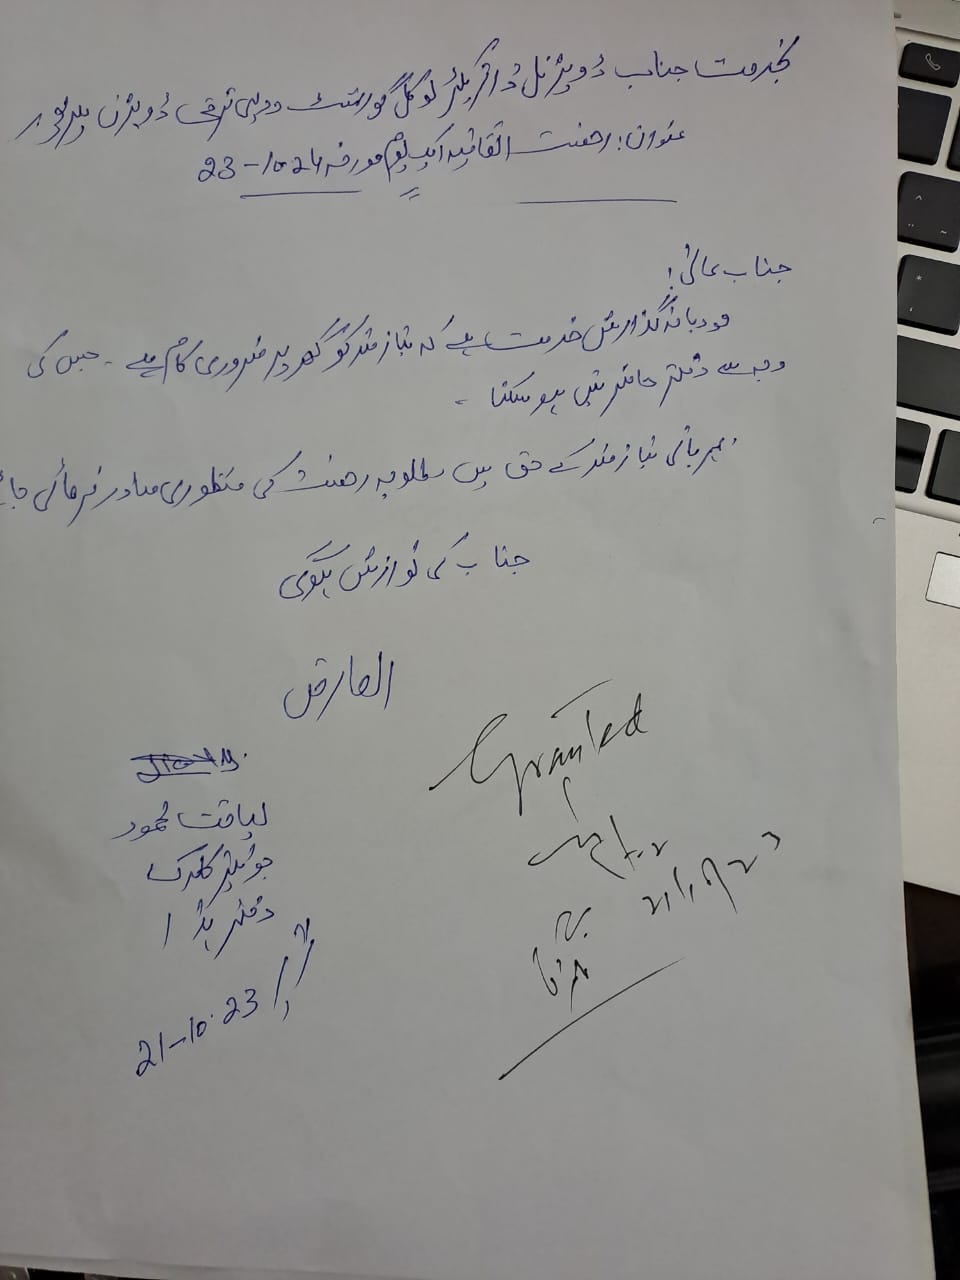 بخدمت جناب ڈویژنل ڈائریکٹر لوکل گورنمنٹ ودیہی ترقی ڈویژن میرپور
عنوان: رخصت اتفاقیہ ایک یوم مورخہ 23-10-24
جناب عالی!
مودبانہ گذارش خدمت ہے کہ نیازمند کو گھر پر ضروری کام ہے۔ جس کی
وجہ سے دفتر حاضر نہیں ہو سکتا ۔
مہربانی نیازمند کے حق میں مطلوبہ رخصت کی منظوری صادر فرمائی جائے
جناب کی نوازش ہوگی
العارض
لیاقت محمود
جونیئر کلرک
دفتر ہذا
21-10-23
Granted